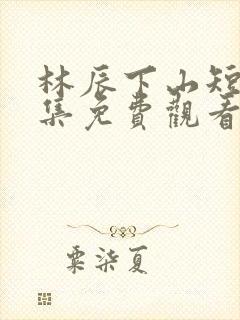 林辰下山短
集免費觀看
粟柒夏